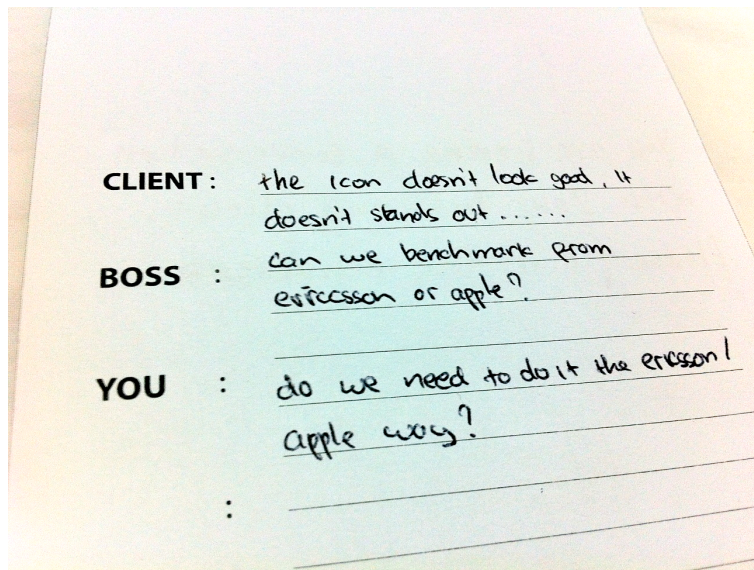 CLIENT : the icon doesn't look good, it
doesn't stands out ......
BOSS : can we benchmark from
erriccsson or apple?
YOU : do we need to do it the ericsson/
apple way?
: